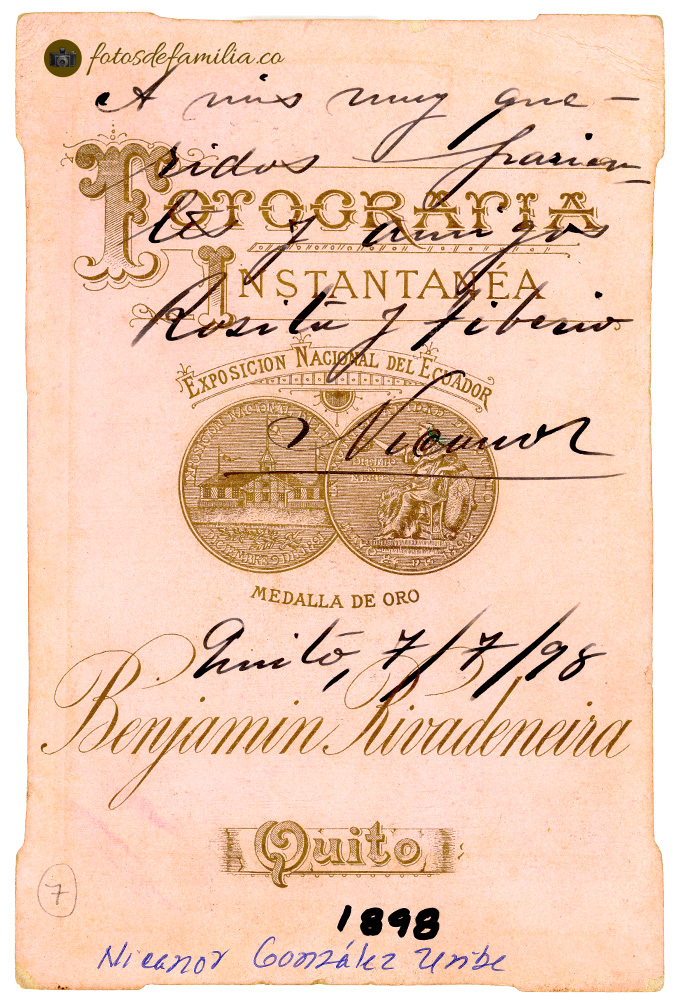 fotosdefamilia.co
A mis muy que-
ridos parien-
FOTOGRAFIA
tes y amigos
INSTANTANÉA
Rosita y Tiberio
EXPOSICION NACIONAL DEL ECUADOR
Nicanor
MEDALLA DE ORO
Quito, 7/7/98
Benjamin Rivadeneira
Quito
7
1898
Nicanor González Uribe